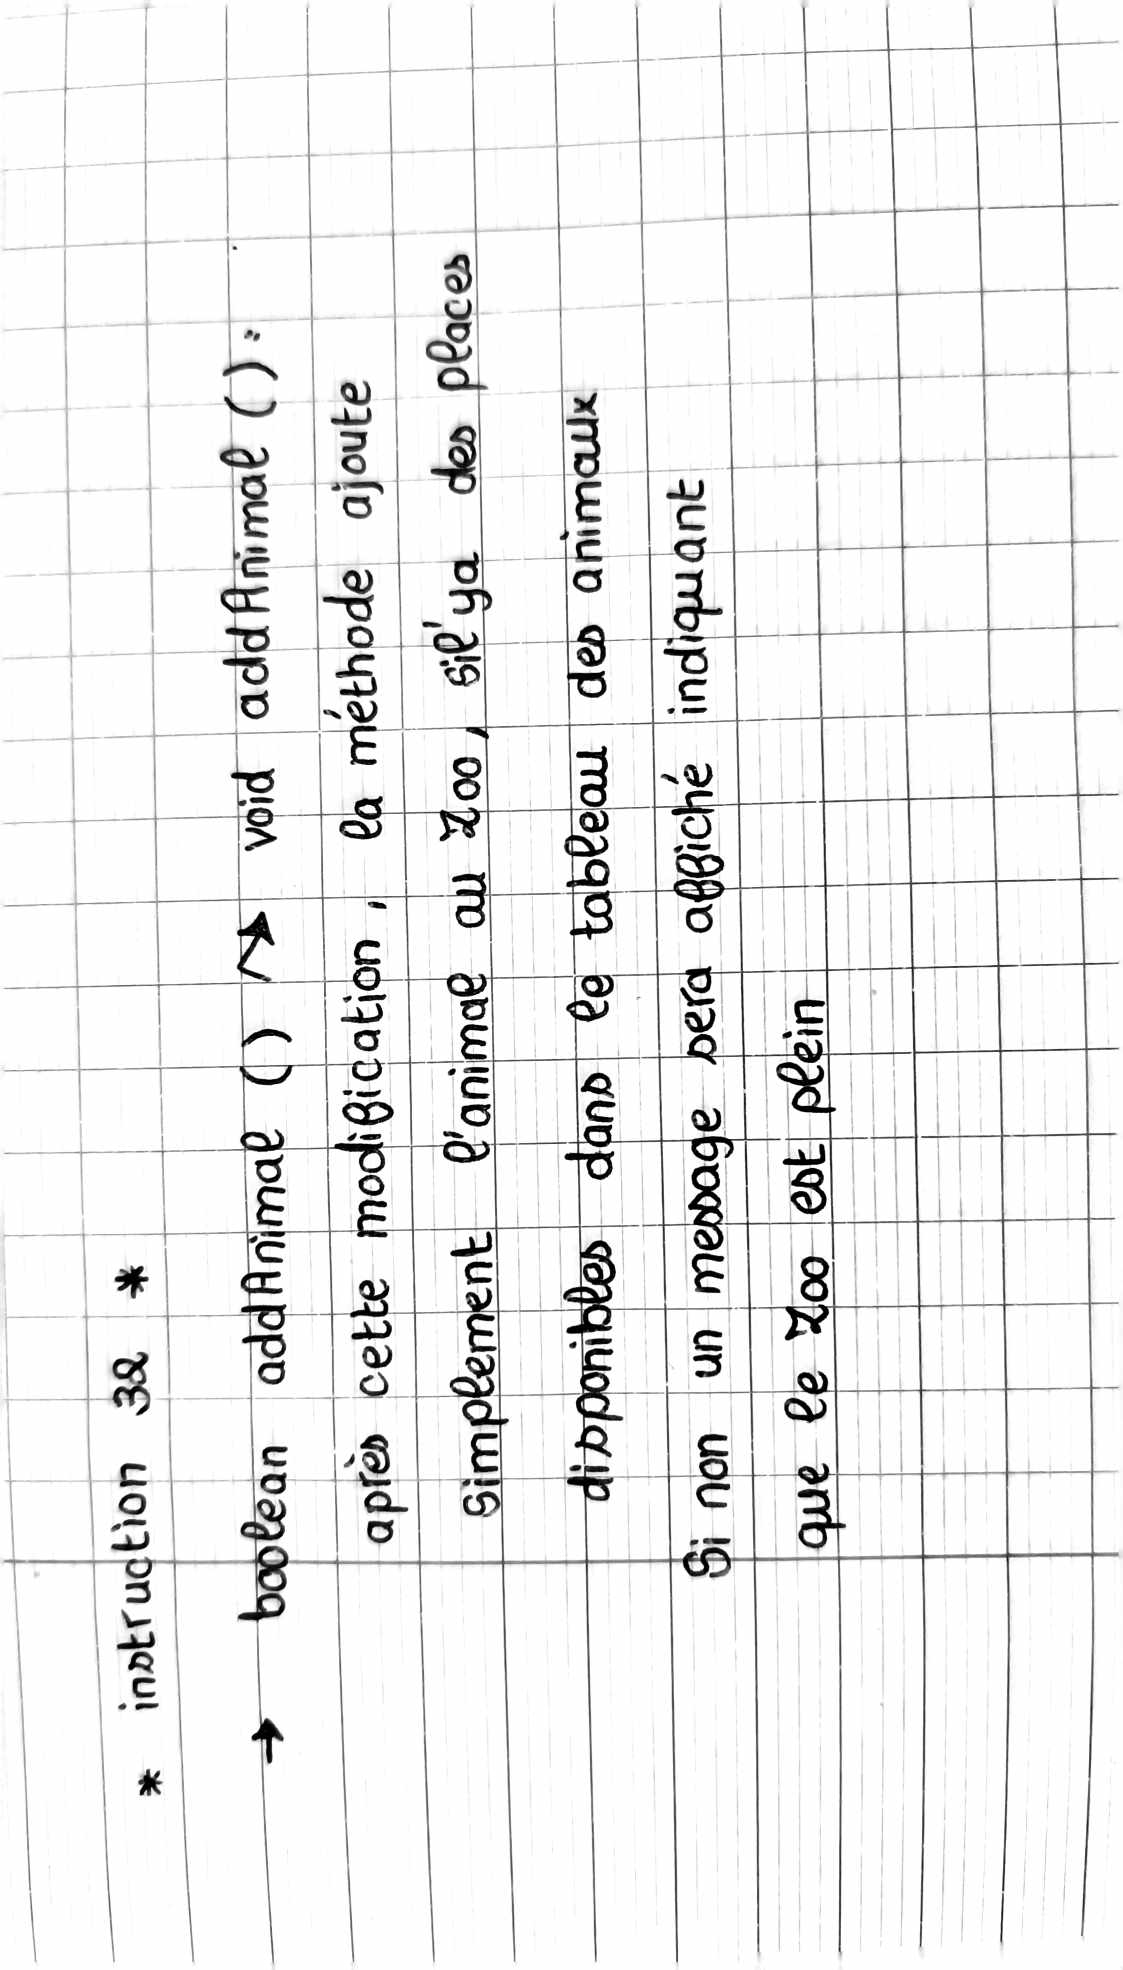 * instruction 32 *
→ boolean addAnimal () → void addAnimal () :
après cette modification, la méthode ajoute
simplement l'animal au Zoo, sil'ya des places
disponibles dans le tableau des animaux
Si non un message sera affiché indiquant
que le Zoo est plein